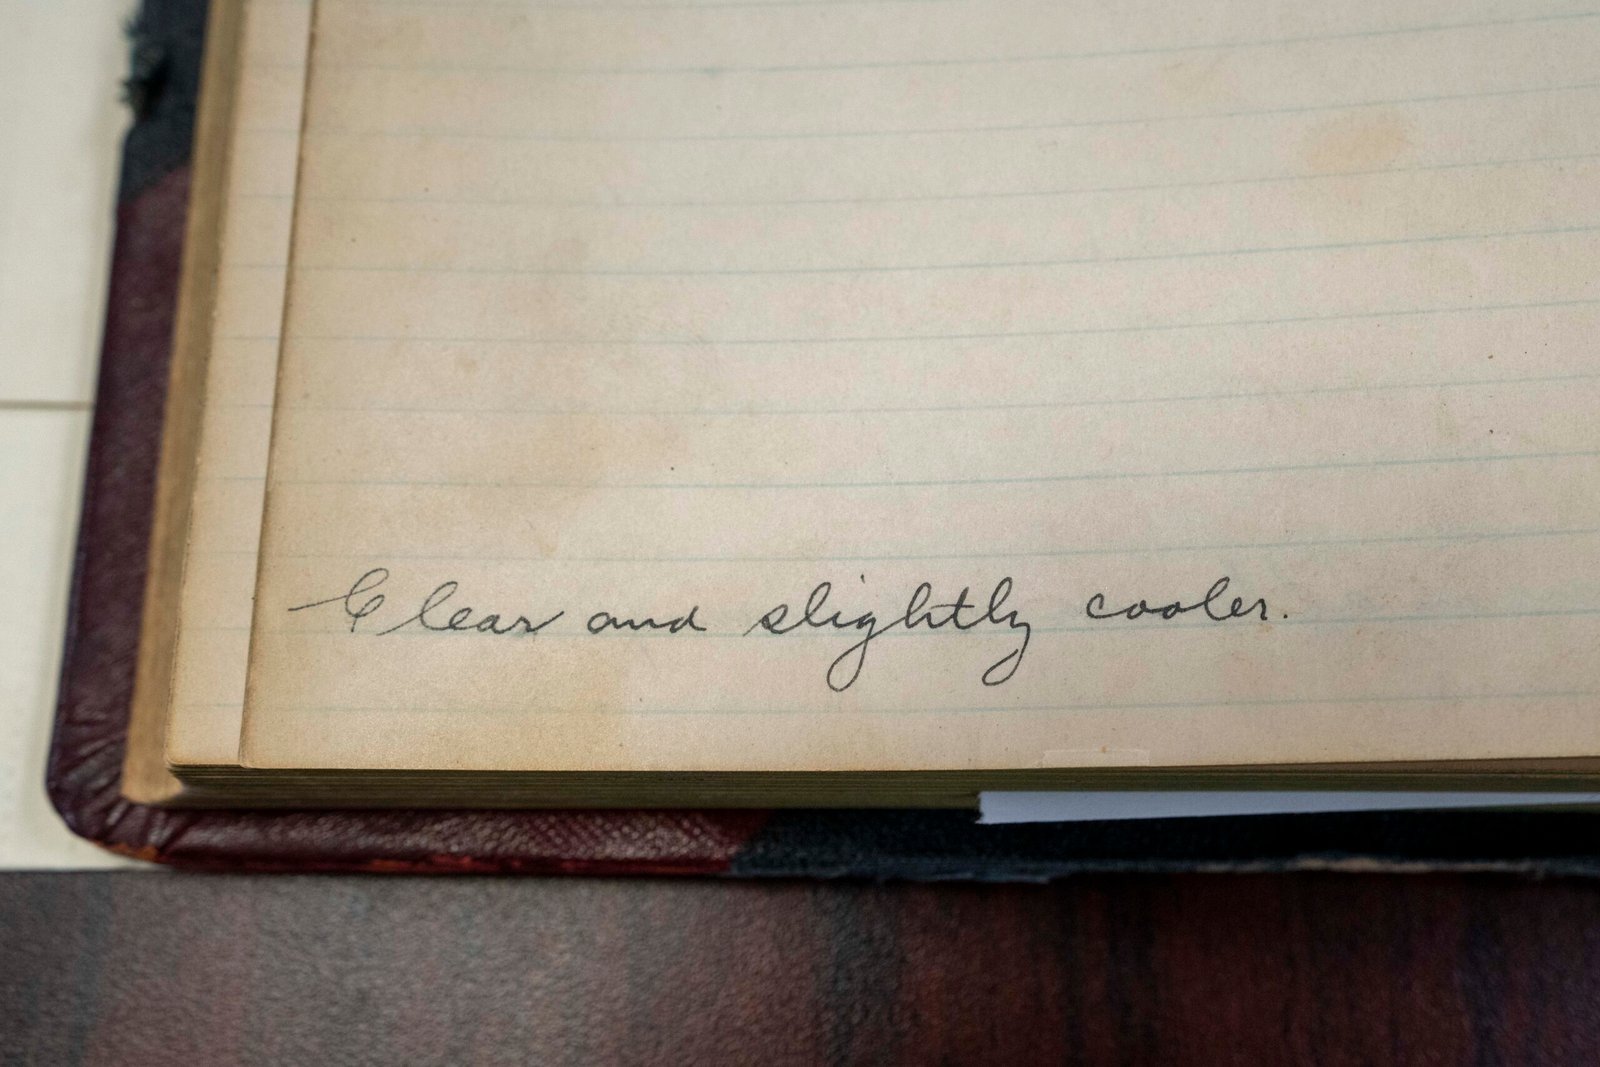 Clear and slightly cooler.